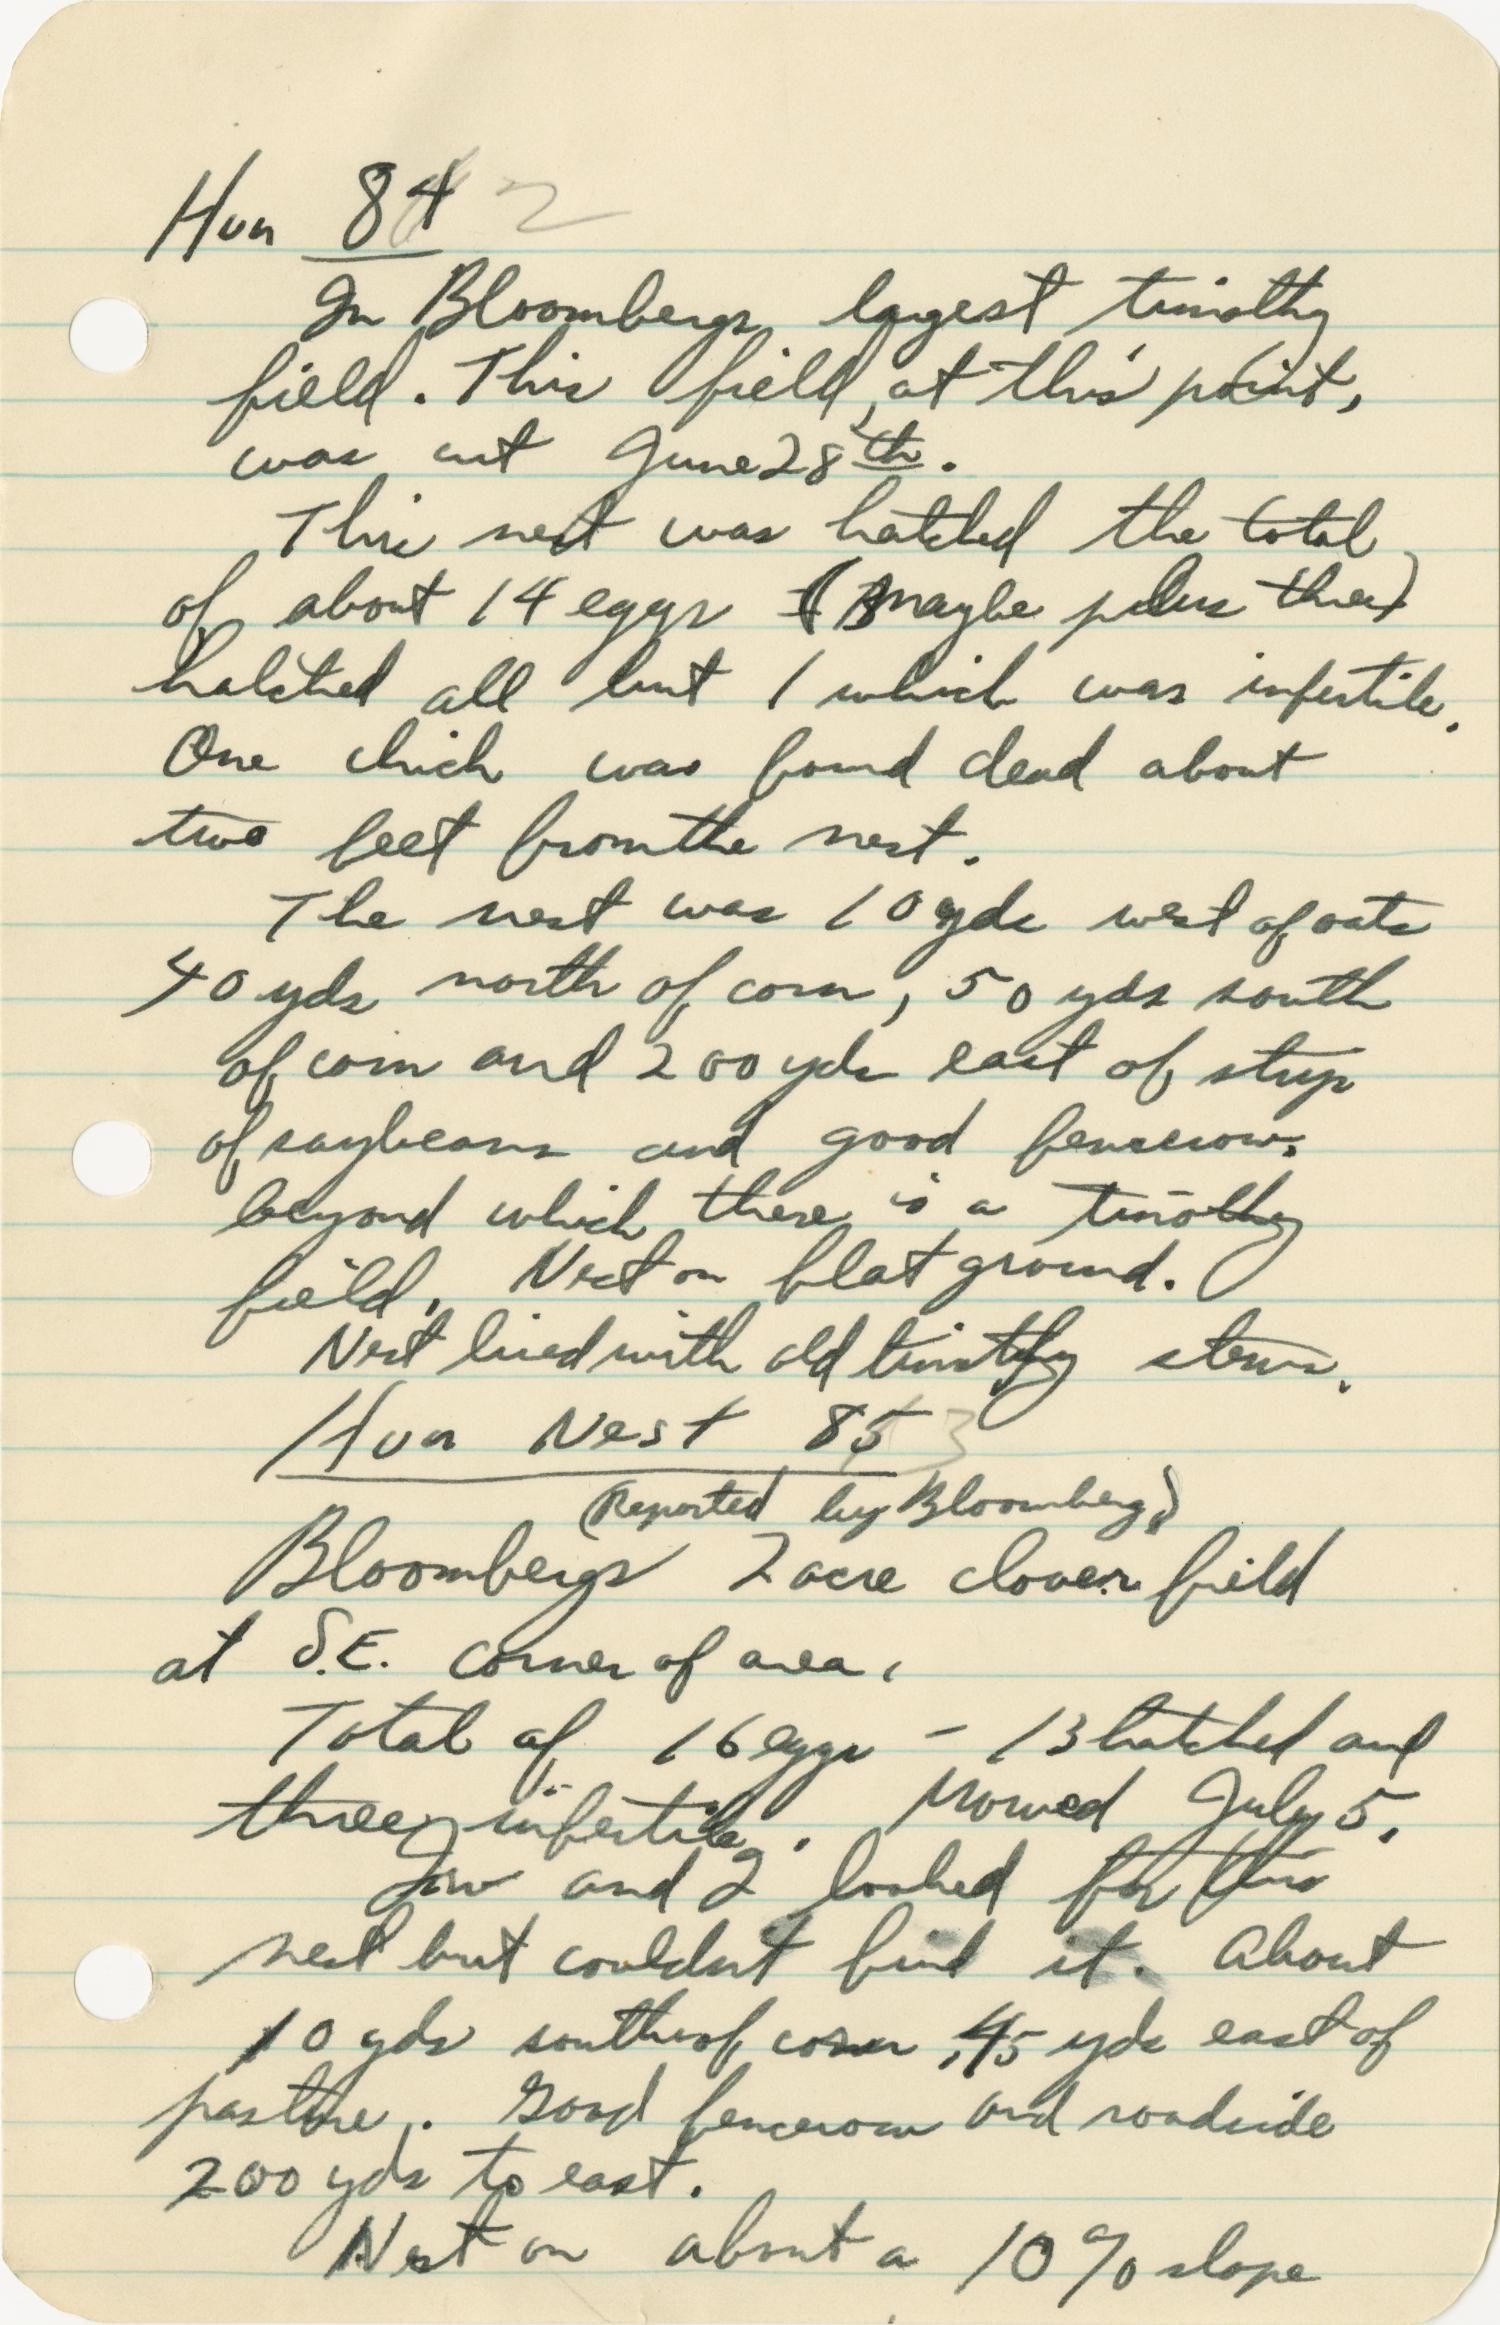 Hun 84 2
In Bloombergs largest timothy
field. This field, at this point,
was cut June 28th.
This nest was hatched the total
of about 14 eggs (maybe plus three)
hatched all but 1 which was infertile.
One chick was found dead about
two feet from the nest.
The nest was 10 yds west of oats
40 yds north of corn, 50 yds south
of corn and 200 yds east of strip
of soybeans and good fencerow,
beyond which there is a timothy
field. Nest on flat ground.
Nest lined with old timothy stems.
Hun Nest 85 3
(Reported by Bloomberg)
Bloombergs 2 acre clover field
at S.E. corner of area.
Total of 16 eggs - 13 hatched and
three infertile. Mowed July 5.
Jim and I looked for this
nest but couldnt find it. About
10 yds south of corn, 45 yds east of
pasture. Good fencerow and roadside
200 yds to east.
Nest on about a 10% slope